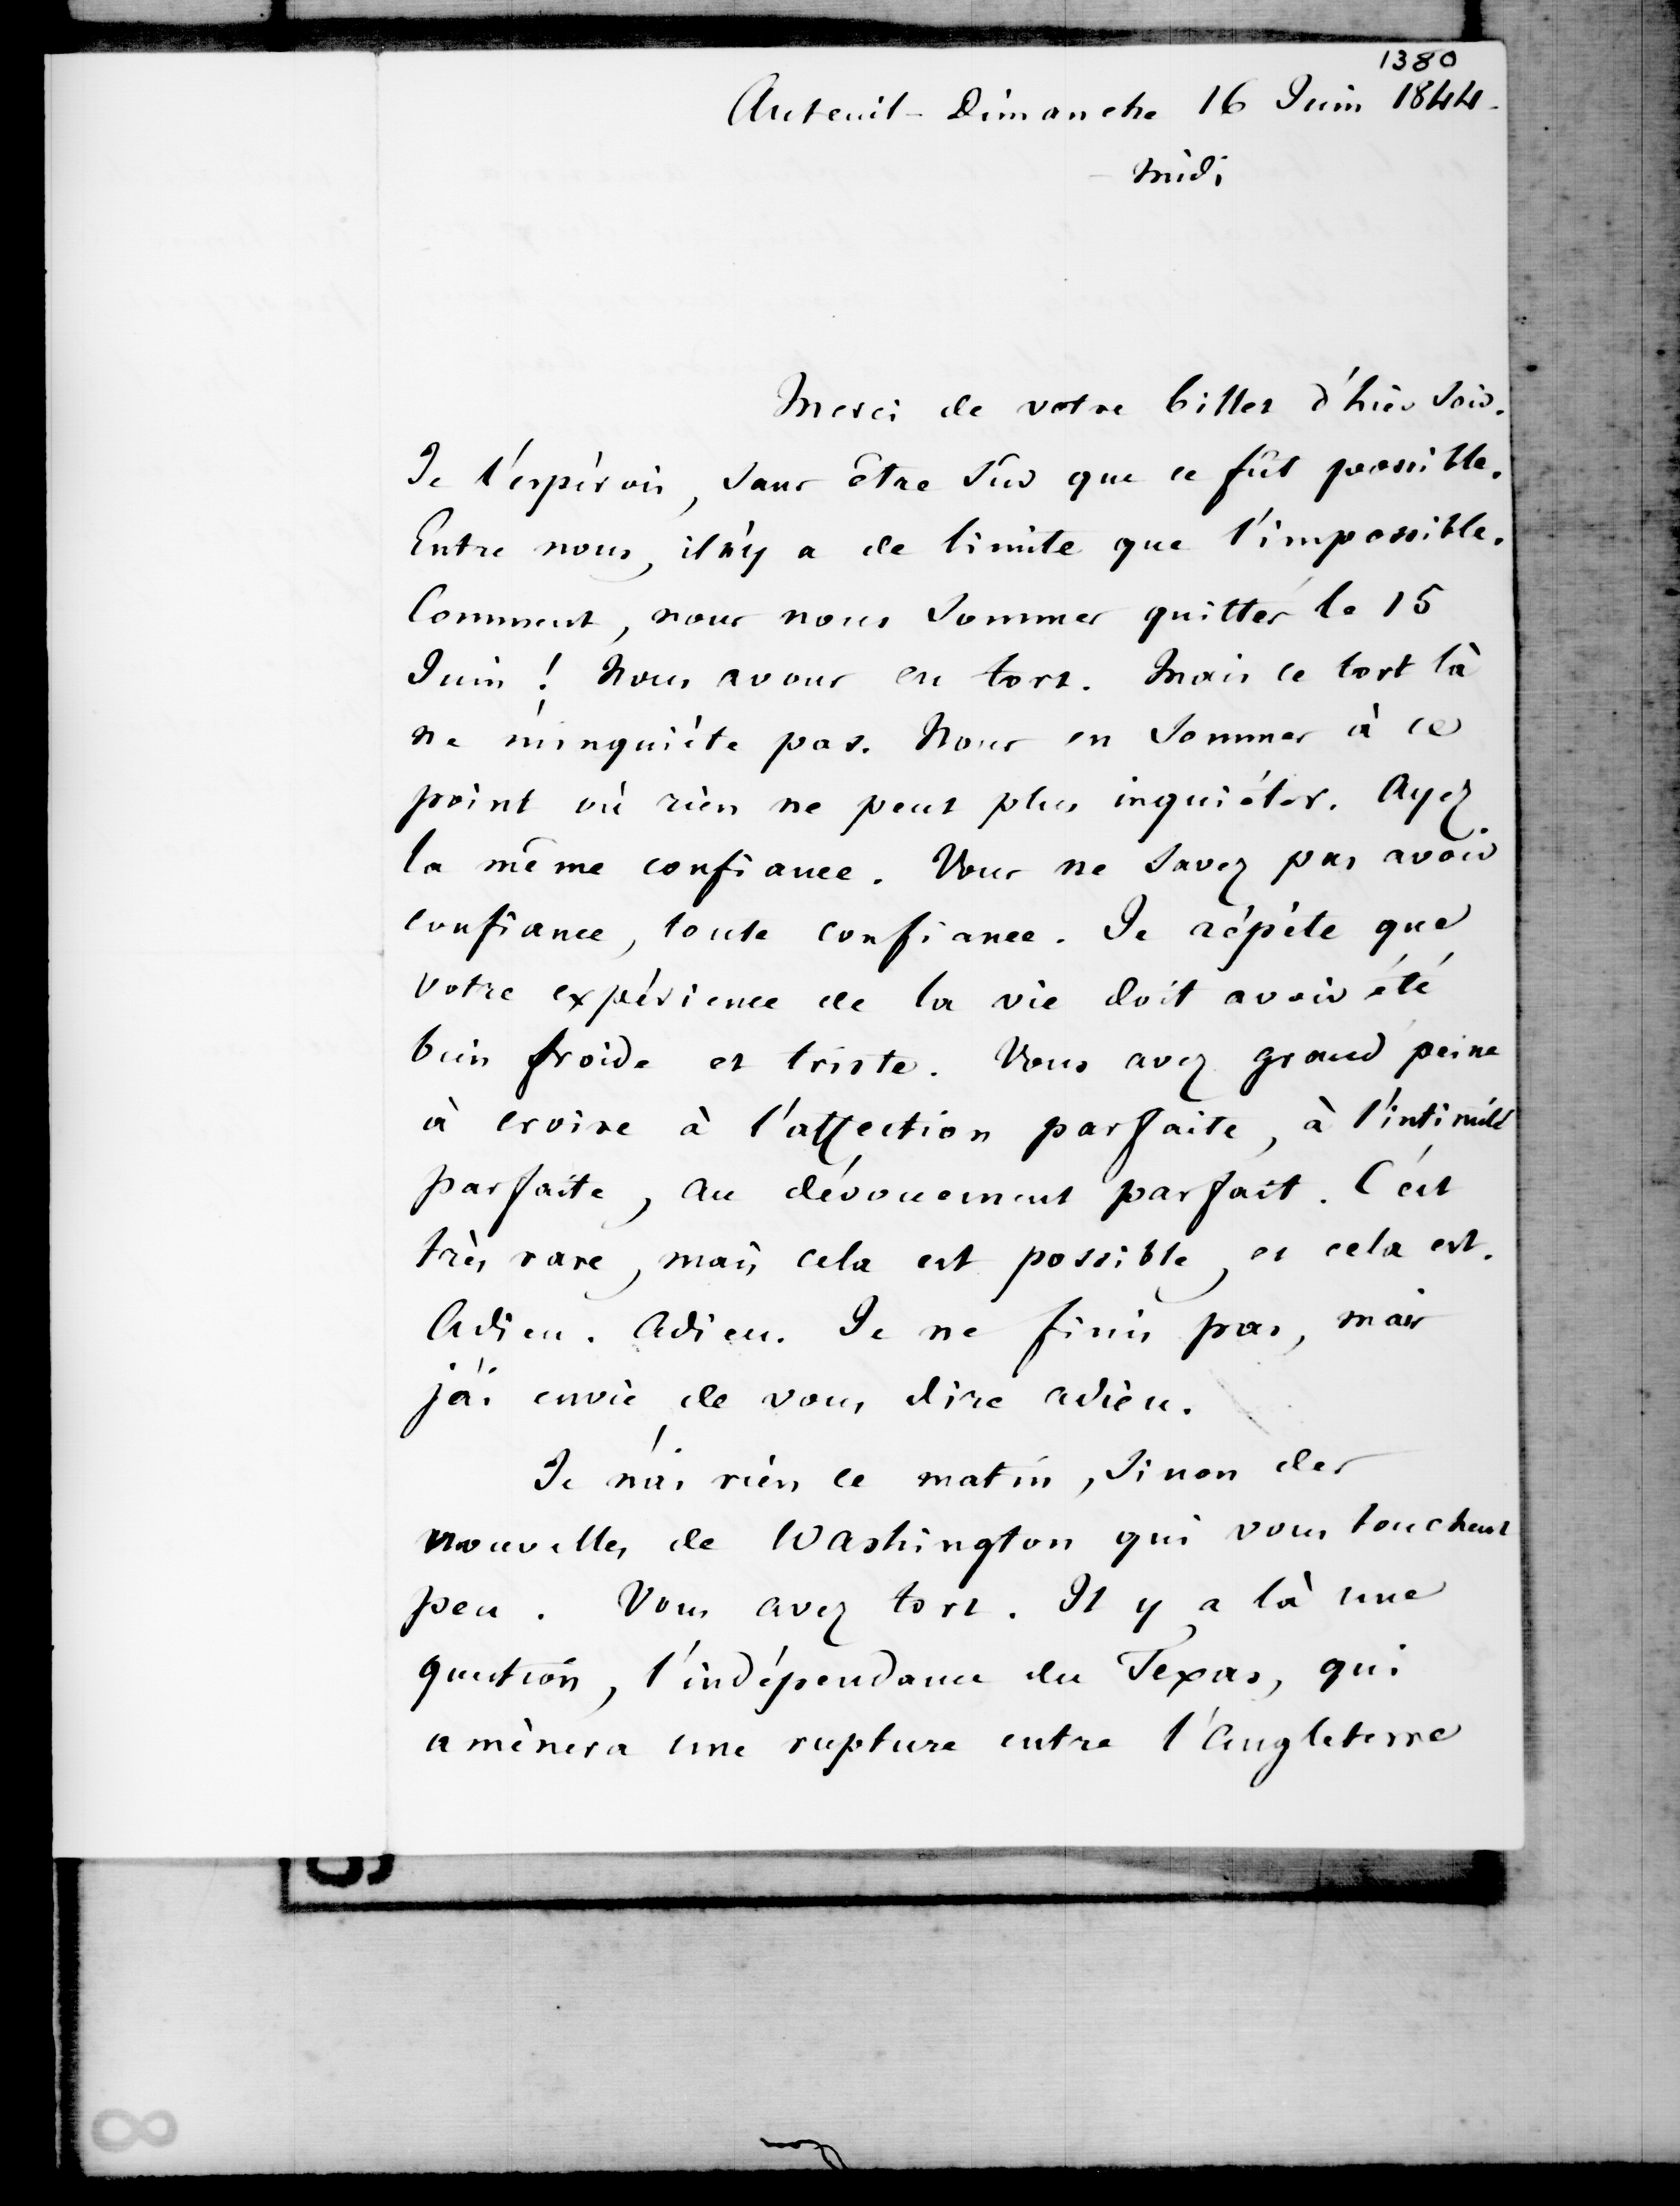 1380
Auteuil - Dimanche 16 Juin 1844 -
- midi
Merci de votre billet d'hier soir.
Je l'espérois, sans être sûr que ce fût possible.
Entre nous, il n'y a de limite que l'impossible.
Comment, nous nous sommes quittés le 15
Juin ! Nous avons eu tort. Mais ce tort là
ne m'inquiète pas. Nous en sommes à ce
point où rien ne peut plus inquiéter. Ayez
la même confiance. Vous ne savez pas avoir
confiance, toute confiance. Je répète que
votre expérience de la vie doit avoir été
bien froide et triste. Vous avez grand peine
à croire à l'affection parfaite, à l'intimité
parfaite, au dévouement parfait. C'est
très rare, mais cela est possible, et cela est.
Adieu. Adieu. Je ne finis pas, mais
j'ai envie de vous dire adieu.
Je n'ai rien ce matin, sinon des
nouvelles de Washington qui vous touchent
peu. Vous avez tort. Il y a là une
question, l'indépendance du Texas, qui
amènera une rupture entre l'Angleterre